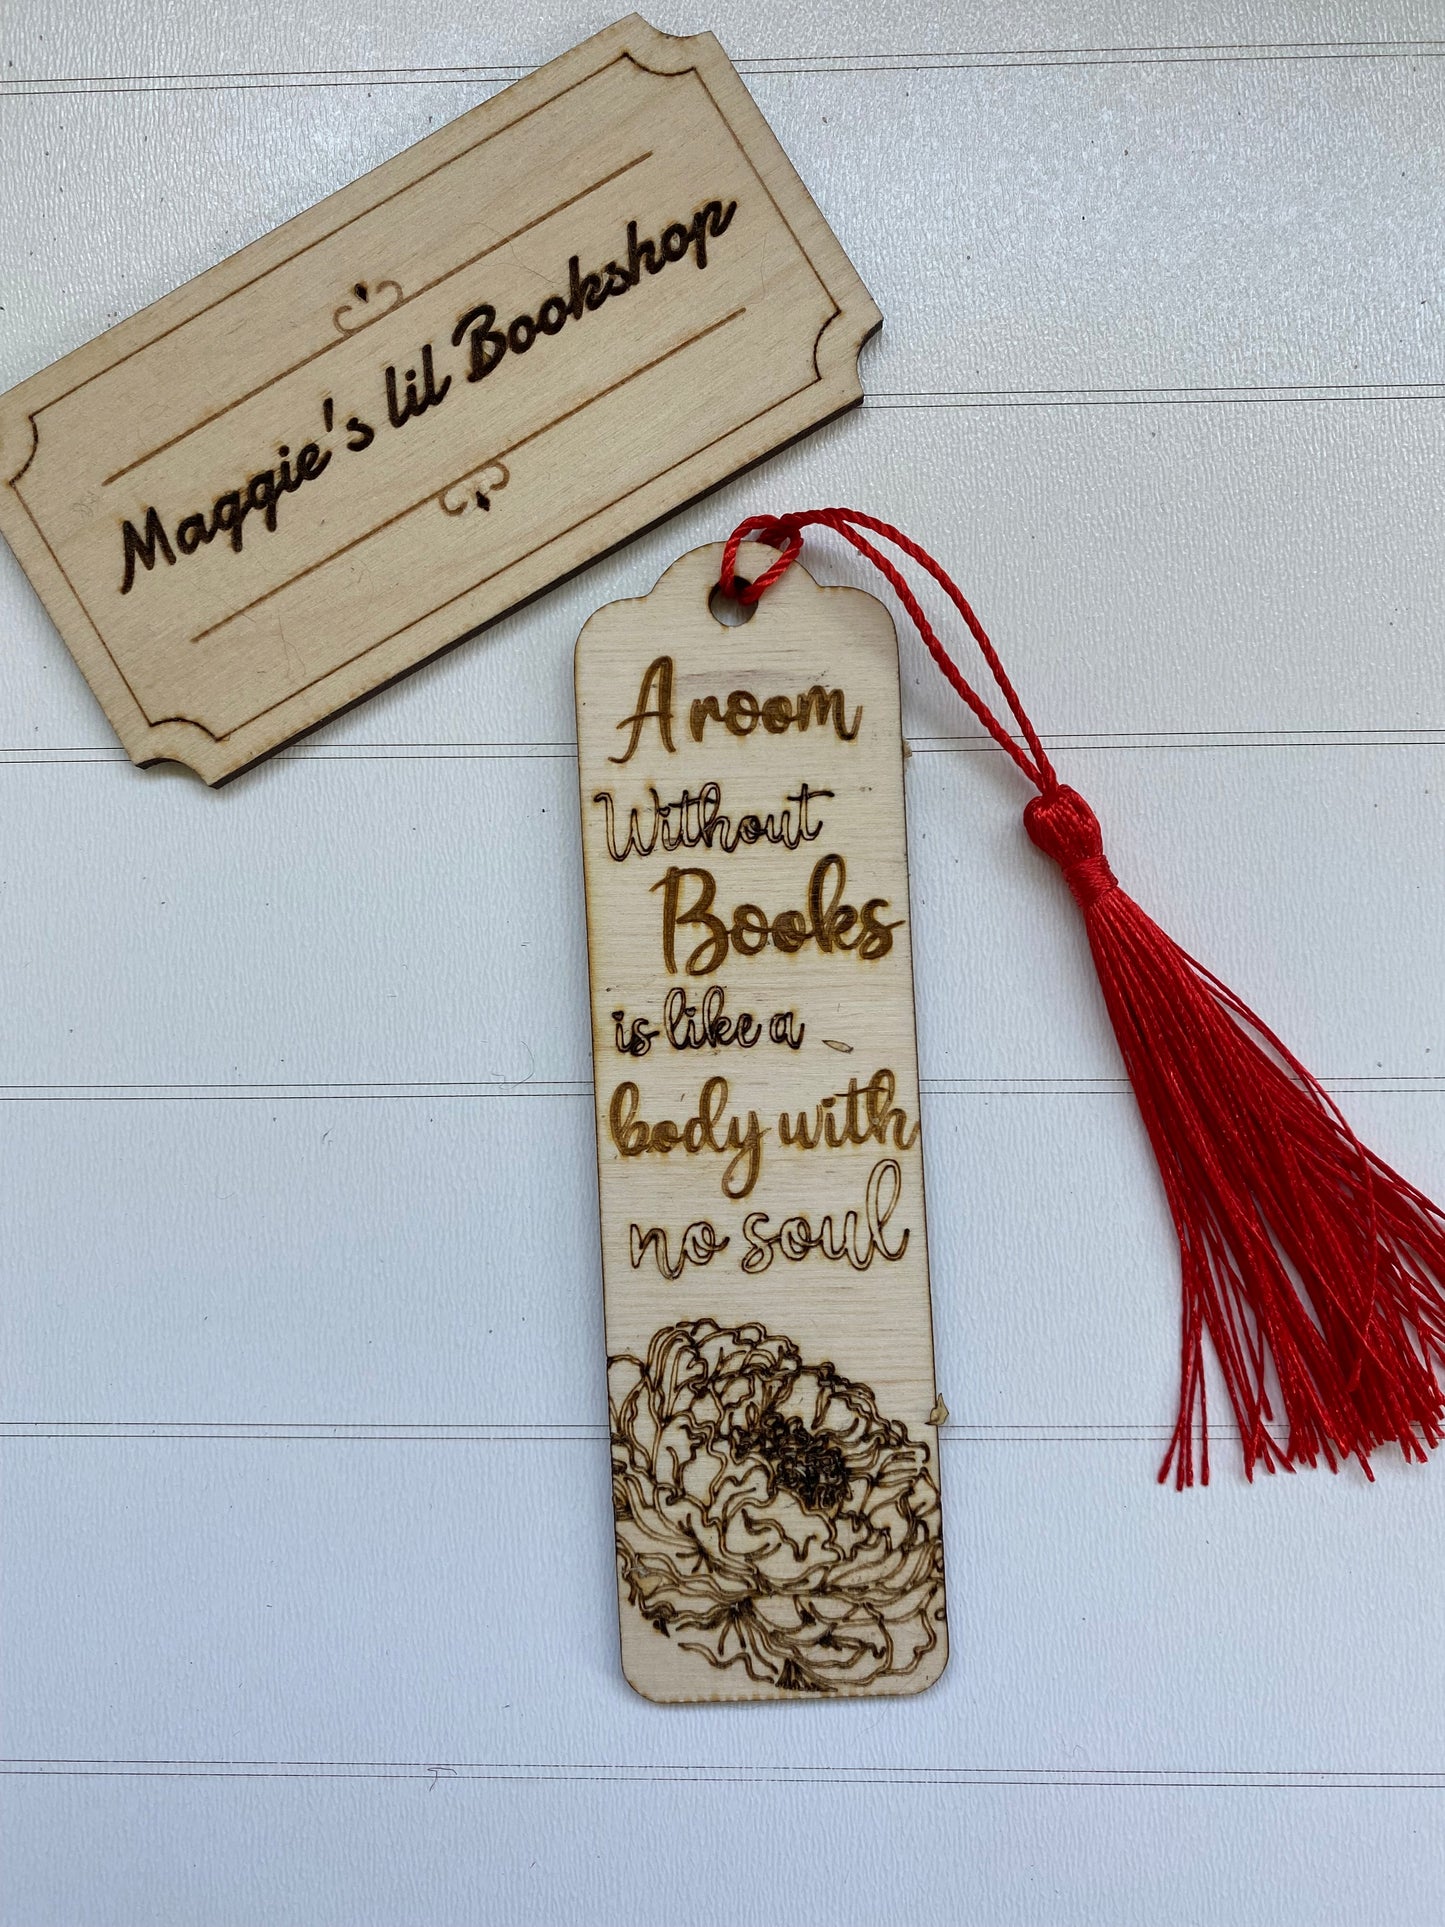 Maggie's lil Bookshop
A room
Without
Books
is like a
body with
no soul